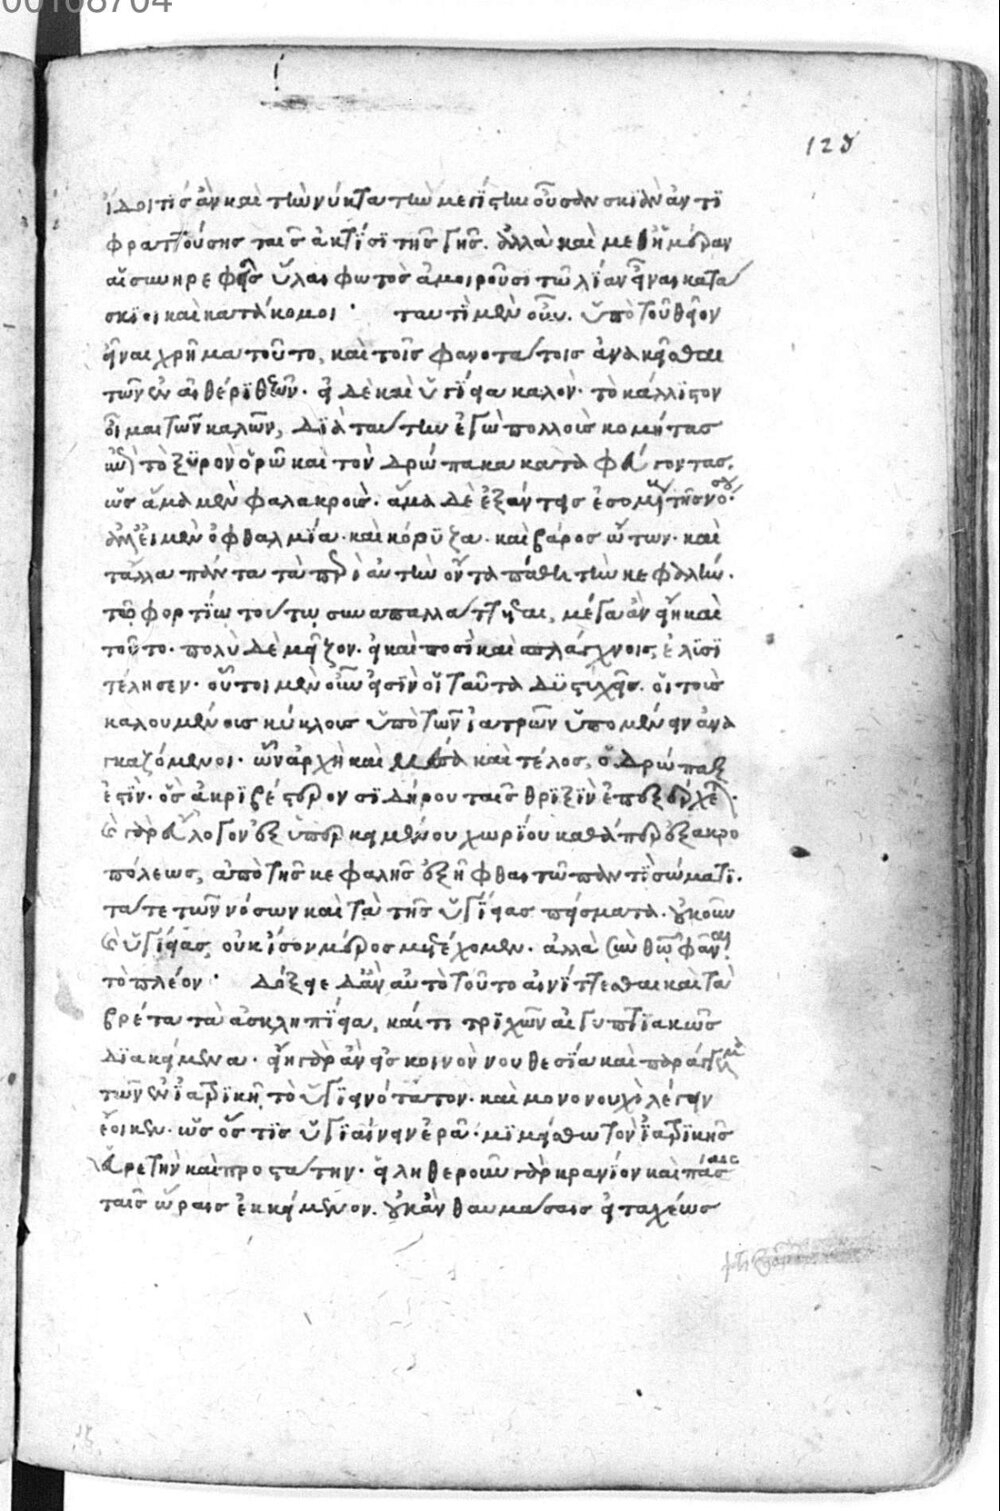 ἴδοι τίς ἂν καὶ τὴν νύκτα τὴν μεγίστην οὖσαν σκιὰν ἀντι
φραττούσης ταῖς ἀκτῖσι τῆς γῆς. ἀλλὰ καὶ μεθ' ἡμέραν
αἱ συνηρεφεῖς ὗλαι φωτὸς ἀμοιροῦσι τῷ λίαν εἶναι κατά
σκιοι καὶ κατάκομοι· ταυτὶ μὲν οὖν. ὑπὸ τοῦ θεῖον
εἶναι χρῆμα τοῦτο, καὶ τοῖς φανοτάτοις ἀνακεῖσθαι
τῶν ἐν αἰθέρι θεῶν. εἰ δὲ καὶ ὑγίεια καλόν. τὸ κάλλιστον
οἶμαι τῶν καλῶν, διὰ ταύτην ἐγὼ πολλοὺς κομήτας
ἐπὶ τὸ ξυρὸν ὁρῶ καὶ τὸν δρώπακα καταφεύγοντας.
ὡς ἅμα μὲν φαλακροὺς. ἅμα δὲ ἐξάντεις ἐσομένους τῆς νόσου.
ἀλλ' εἰ μὲν ὀφθαλμία. καὶ κόρυζα. καὶ βάρος ὤτων. καὶ
τἄλλα πάντα τὰ περὶ αὐτὴν ὄντα πάθη τὴν κεφαλήν.
τῷ φορτίῳ τούτῳ συναπαλλάττεται, μέγα ἂν εἴη καὶ
τοῦτο. πολὺ δὲ μεῖζον. εἰ καὶ ποσὶ καὶ σπλάγχνοις, ἐλυσι
τέλησεν. οὗτοι μὲν οὖν εἰσὶν οἱ ταῦτα δυστυχεῖς. οἱ τοῖς
καλουμένοις κύκλοις ὑπὸ τῶν ἰατρῶν ὑπομένειν ἀνα
γκαζόμενοι. ὧν ἀρχὴ καὶ μέσα καὶ τέλος, ὁ δρώπαξ
ἐστίν. ὃς ἀκριβέστερον σιδήρου ταῖς θριξὶν ἐπεξέρχεται.
εὖ γὰρ λόγον ἐξ ὑπερκειμένου χωρίου καθάπερ ἐξ ἀκρο
πόλεως, ἀπὸ τῆς κεφαλῆς ἐξῆφθαι τῷ παντὶ σώματι.
τά τε τῶν νόσων καὶ τὰ τῆς ὑγιείας πείσματα. οὐκοῦν
ὑγιείας, οὐκ ἴσον μέρος μετέχομεν. ἀλλὰ σὺν θεῷ φάναι
τὸ πλέον· δόξειε δ' ἂν αὐτὸ τοῦτο αἰνίττεσθαι καὶ τὰ
βρέτα τὰ ἀσκληπίεια, καί τι τριχῶν αἰγυπτιακῶς
διακείμενα. εἴη γὰρ ἂν εἰς κοινὸν νουθεσία καὶ παράγγελμα
τῶν ἐν ἰατρικῇ, τὸ ὑγιεινότατον. καὶ μονονουχὶ λέγειν
ἔοικεν. ὡς ὅς τις ὑγιαίνειν ἐρᾷ. μιμείσθω τὸν ἰατρικῆς
εὑρετὴν καὶ προστάτην. εἰληθεροῦν γὰρ κρανίον καὶ πάσαις
ταῖς ὥραις ἐκκείμενον. οὐκ ἂν θαυμάσαις εἰ ταχέως